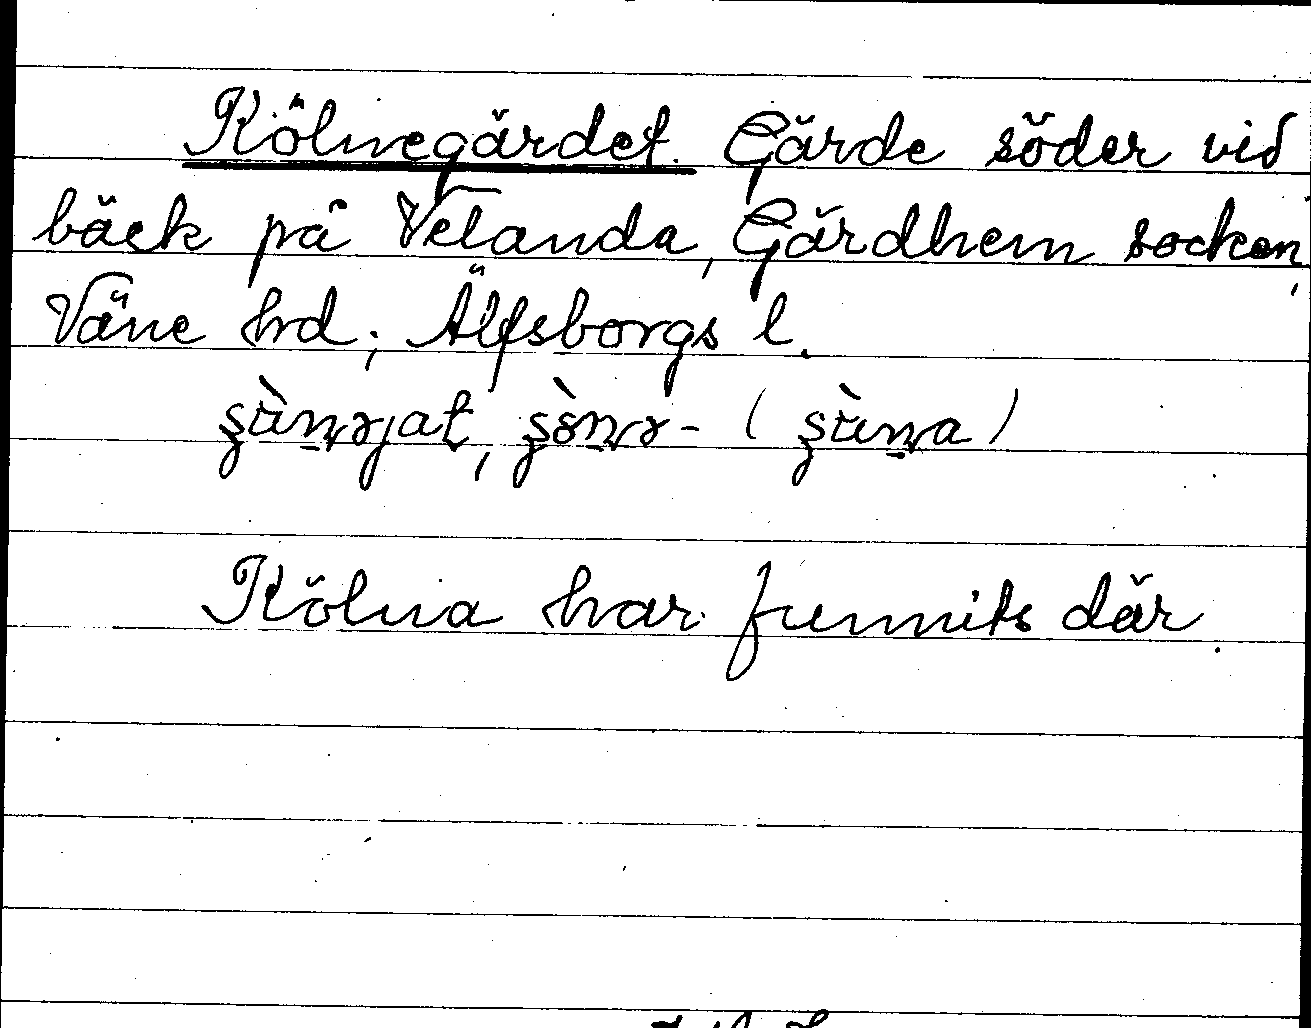 Kölnegärdet. Gärde söder vid
bäck på Velanda, Gärdhem socken,
Väne hrd; Älfsborgs l.
Kölna har funnits där.